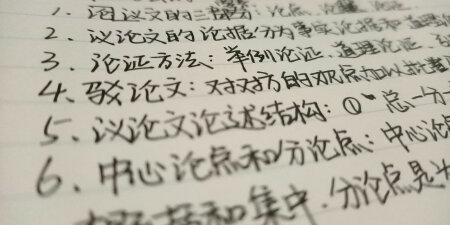 1. 议论文的三部分:论点、论据、论证
2、议论文的论据分为事实论据和道理
3、论证方法:举例论证、道理论证、
4、驳论文:对对方的观点加以批
5、议论文论述结构:① 总一分一
6、中心论点和分论点:中心论点
和集中,分论点是为